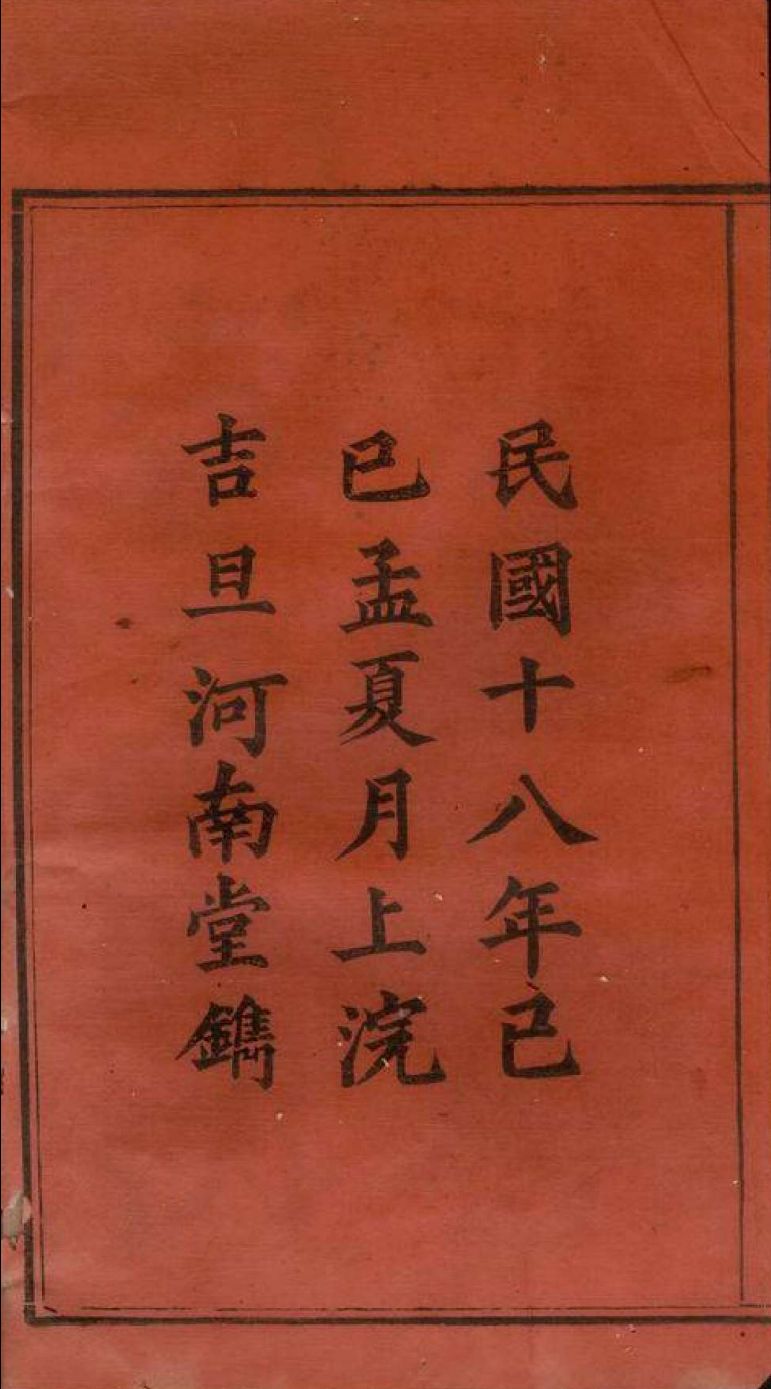 民國十八年己
巳孟夏月上浣
吉旦河南堂鐫